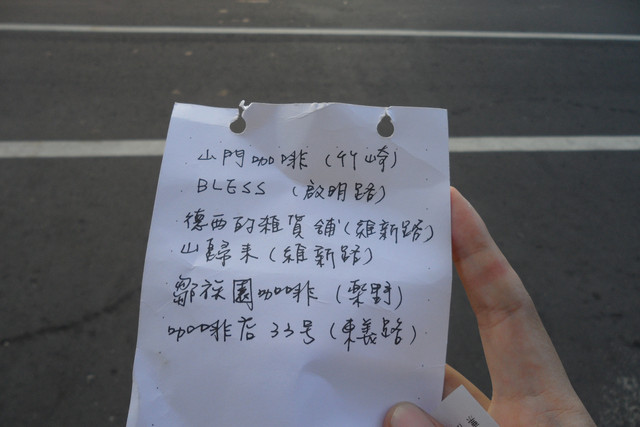 山門咖啡(竹崎)
BLESS (啟明路)
德西的雜貨舖(維新路)
山歸来(維新路)
鄒族園咖啡(樂野)
咖啡店33号(東義路)